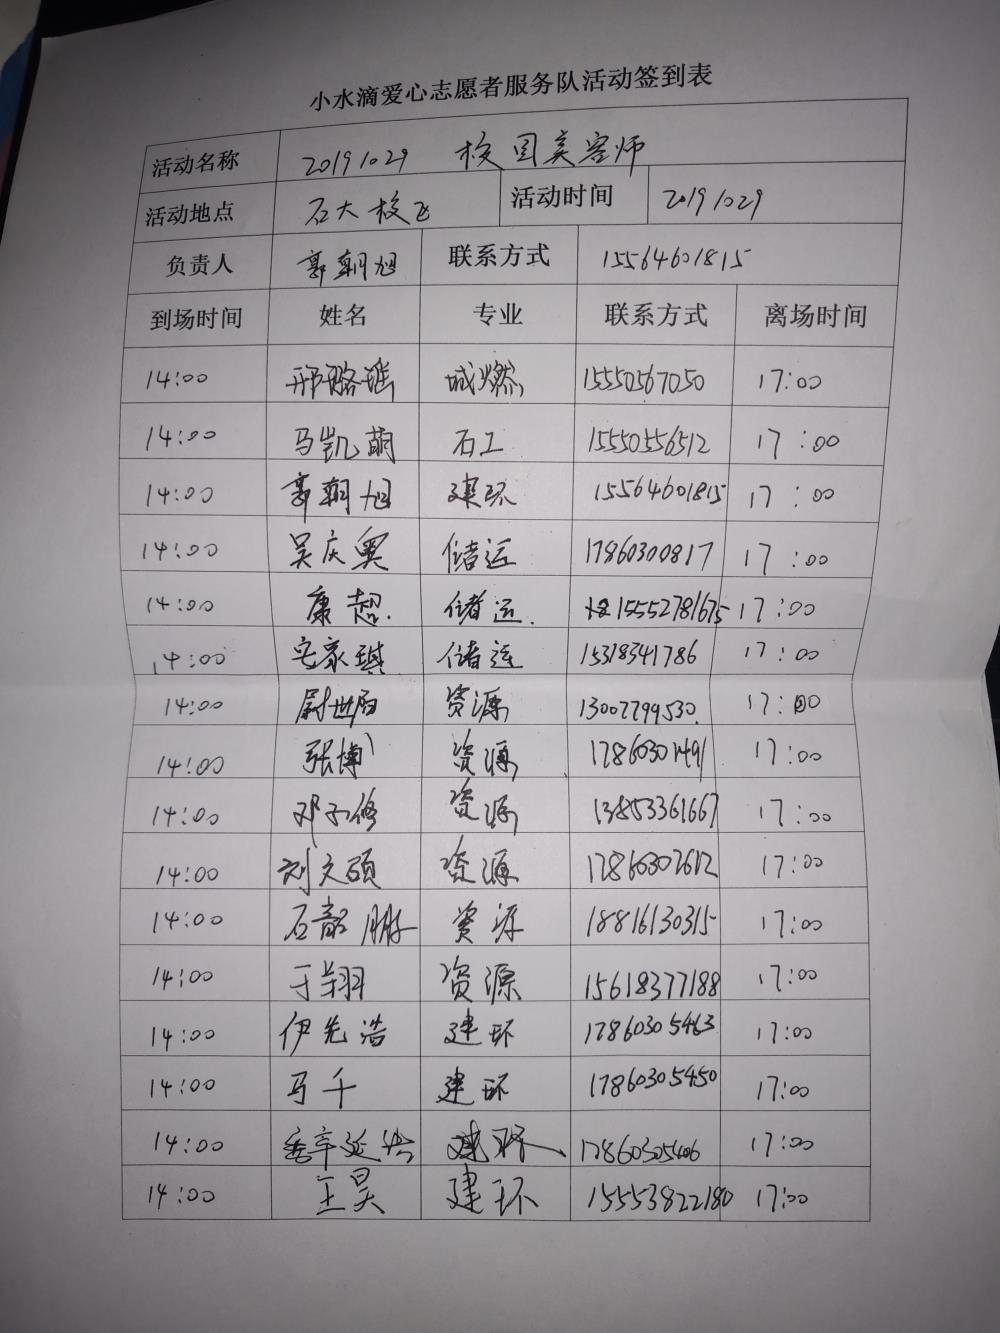 小水滴爱心志愿者服务队活动签到表
活动名称 20191029 校园美容师
活动地点 石大校区 活动时间 20191029
负责人 郭朝旭 联系方式 15564601815
到场时间 姓名 专业 联系方式 离场时间
14:00 邢璐瑶 城燃 15550567050 17:00
14:00 马凯萌 石工 15550556512 17:00
14:00 郭朝旭 建环 15564601815 17:00
14:00 吴庆奥 储运 17860300817 17:00
14:00 康超 储运 15552781675 17:00
14:00 储运 15318341786 17:00
14:00 资源 13007799530 17:00
14:00 张博 资源 17860301491 17:00
14:00 邓子修 资源 13853361667 17:00
14:00 刘文硕 资源 17860302612 17:00
14:00 石韶鹏 资源 18816130315 17:00
14:00 于翔 资源 15618377188 17:00
14:00 伊先浩 建环 17860305463 17:00
14:00 马千 建环 17860305450 17:00
14:00 建环 17860305406 17:00
14:00 王昊 建环 15553822180 17:00